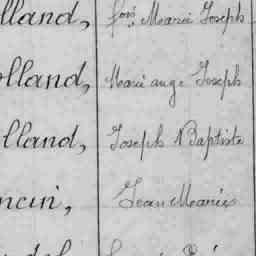 lland, fois Marie Joseph
olland, Marie ange Joseph
lland, Joseph Baptiste
ncin, Jean Marie